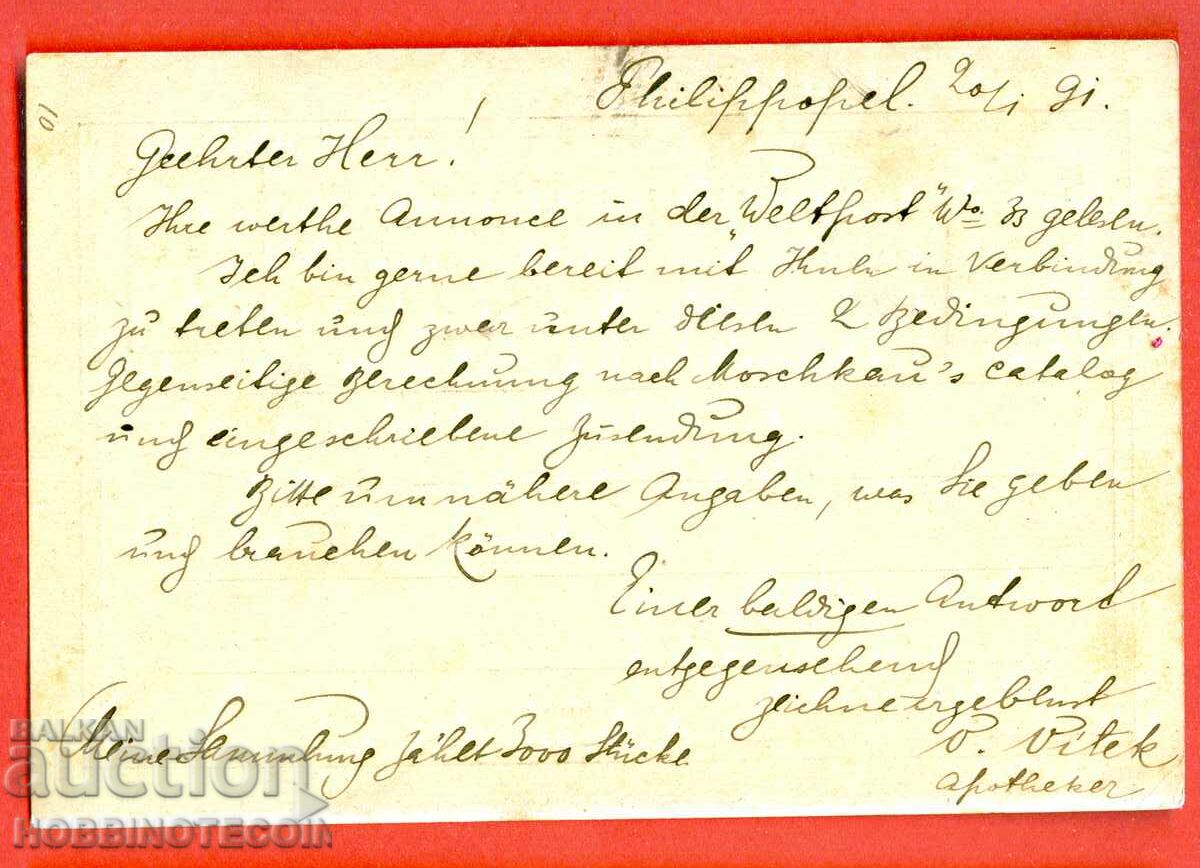 10
Philippopel. 20/1 91.
Geehrter Herr!
Ihre werthe Annonce in der „Weltpost" No. 33 gelesen.
Ich bin gerne bereit mit Ihnen in Verbindung
zu treten und zwar unter diesen 2 Bedingungen.
Gegenseitige Berechnung nach Moschkau's Catalog
und eingeschriebene Zusendung.
Bitte um nähere Angaben, was Sie geben
und brauchen können.
Einer baldigen Antwort
entgegensehend
zeichne ergebenst
V. Vitek
Apotheker
Meine Sammlung zählt 3000 Stücke
BALKAN
auction
HOBBINOTECOIN